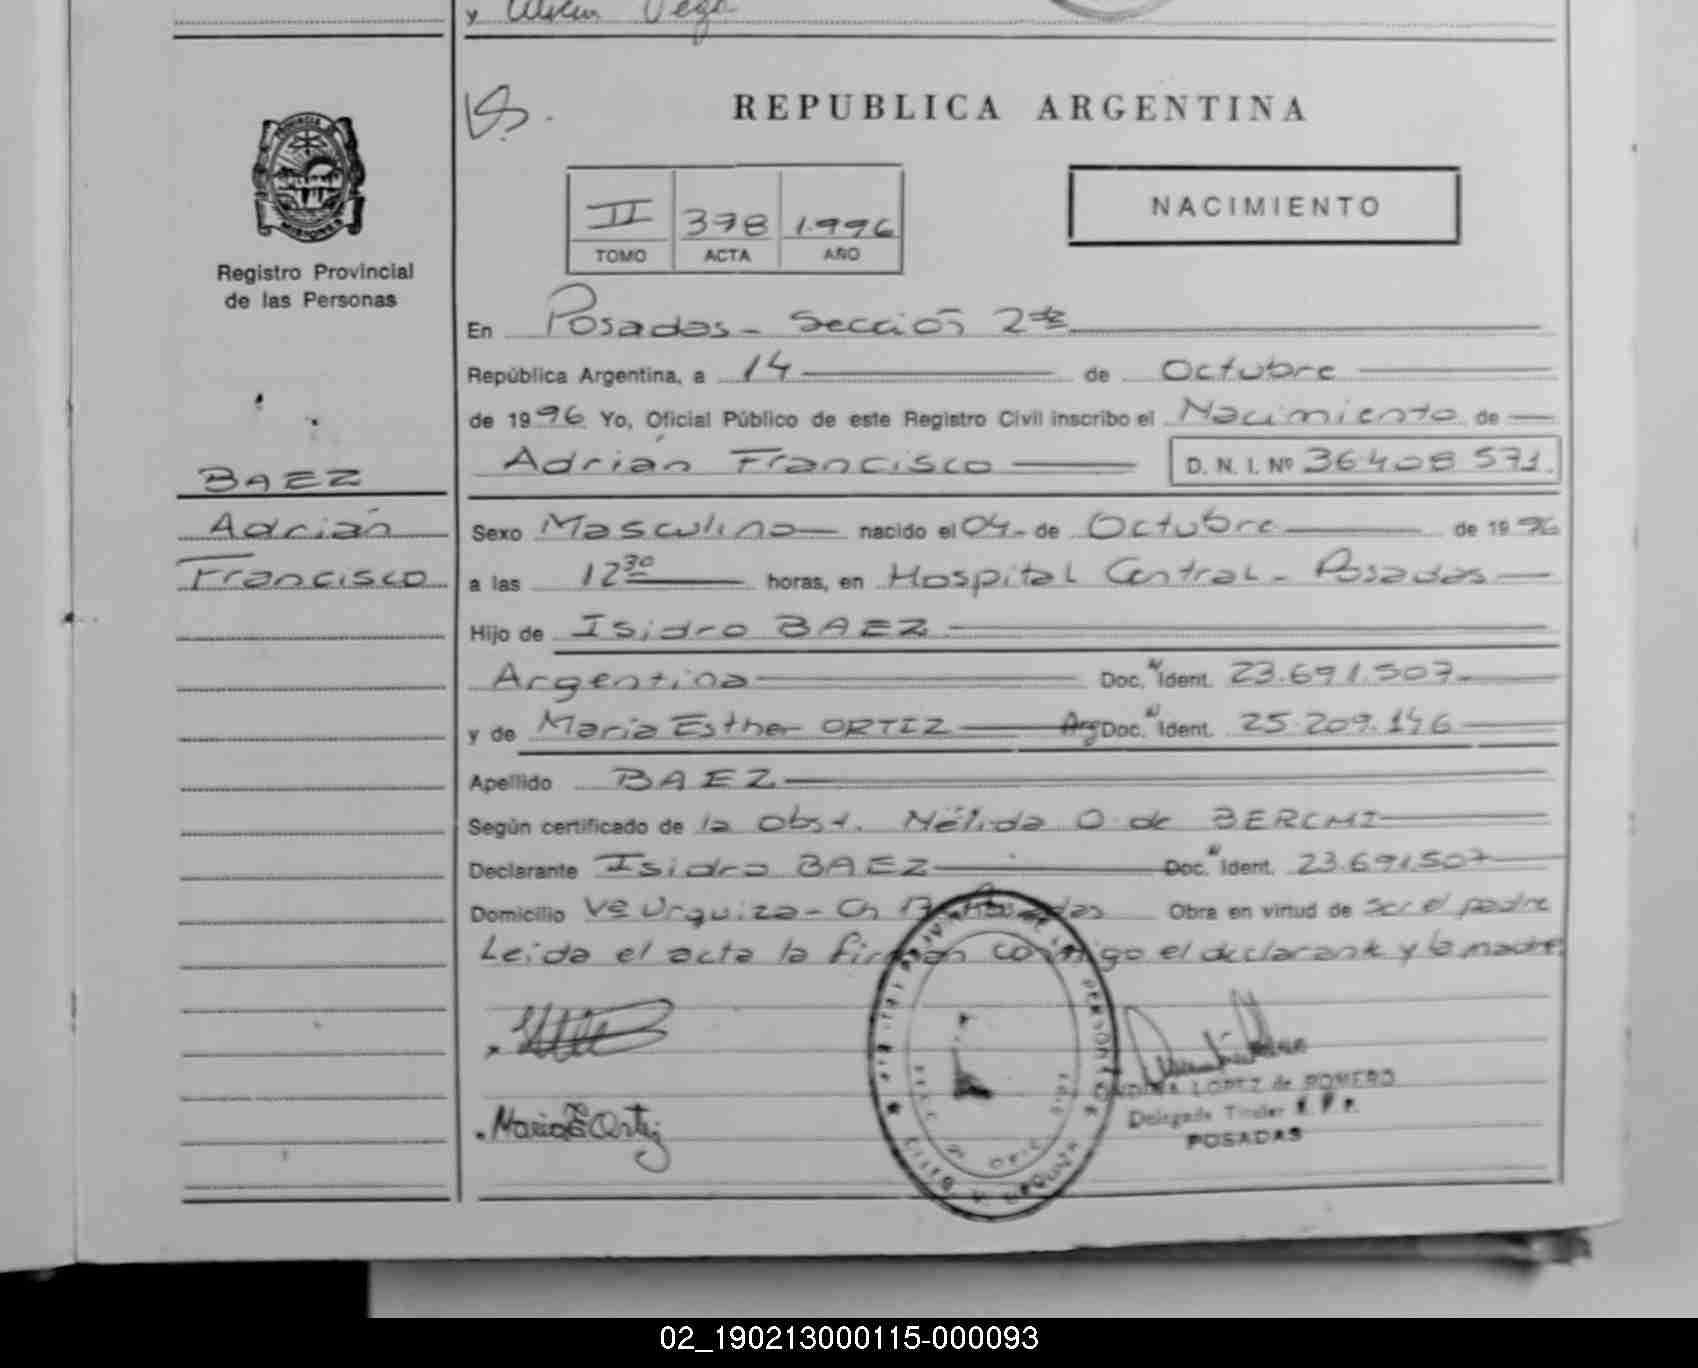 y Vega
REPUBLICA ARGENTINA
PROVINCIA DE
MISIONES
Registro Provincial
de las Personas
II 378 1.996
TOMO ACTA AÑO
NACIMIENTO
En Posadas - Sección 2da
República Argentina, a 14 de Octubre
de 1996 Yo, Oficial Público de este Registro Civil inscribo el Nacimiento de
Adrián Francisco D. N. I. Nº 36408571.
BAEZ
Adrián
Francisco
Sexo Masculino nacido el 04 - de Octubre de 1996
a las 12 30 horas, en Hospital Central - Posadas
Hijo de Isidro BAEZ
Argentina Doc. N Ident. 23.691.507
y de Maria Esther ORTIZ Arg Doc. N Ident. 25.209.146
Apellido BAEZ
Según certificado de la Obst. Nélida O. de
Declarante Isidro BAEZ Doc. N Ident. 23.691.507
Domicilio Vª Urquiza - Ch Posadas Obra en virtud de ser el padre
Leida el acta la firman conmigo el declarante y la madre
Maria E Ortiz
LOPEZ de ROMERO
Delegada Titular R. P. P.
POSADAS
02_190213000115-000093